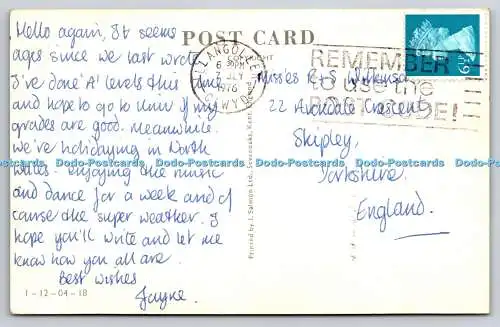 Hello again, It seems
ages since we last wrote.
I've done 'A' levels this time
and hope to go to Univ if my
grades are good. Meanwhile
we're holidaying in North
Wales - enjoying the music
and dance for a week and of
course the super weather. I
hope you'll write and let me
know how you all are.
Best wishes
Jayne.
1-12-04-18
POST CARD
Printed by J. Salmon Ltd., Sevenoaks, Kent.
LLANGOLLEN
6
7 JLY
1976
CLWYD
REMEMBER
to use the
POST CODE!
Misses R & S
22 Avondale Crescent
Shipley,
Yorkshire,
England.
Dodo-Postcards Dodo-Postcards Dodo-Postcards Dodo-Postcards Dodo-Postcards Dodo-Postcards